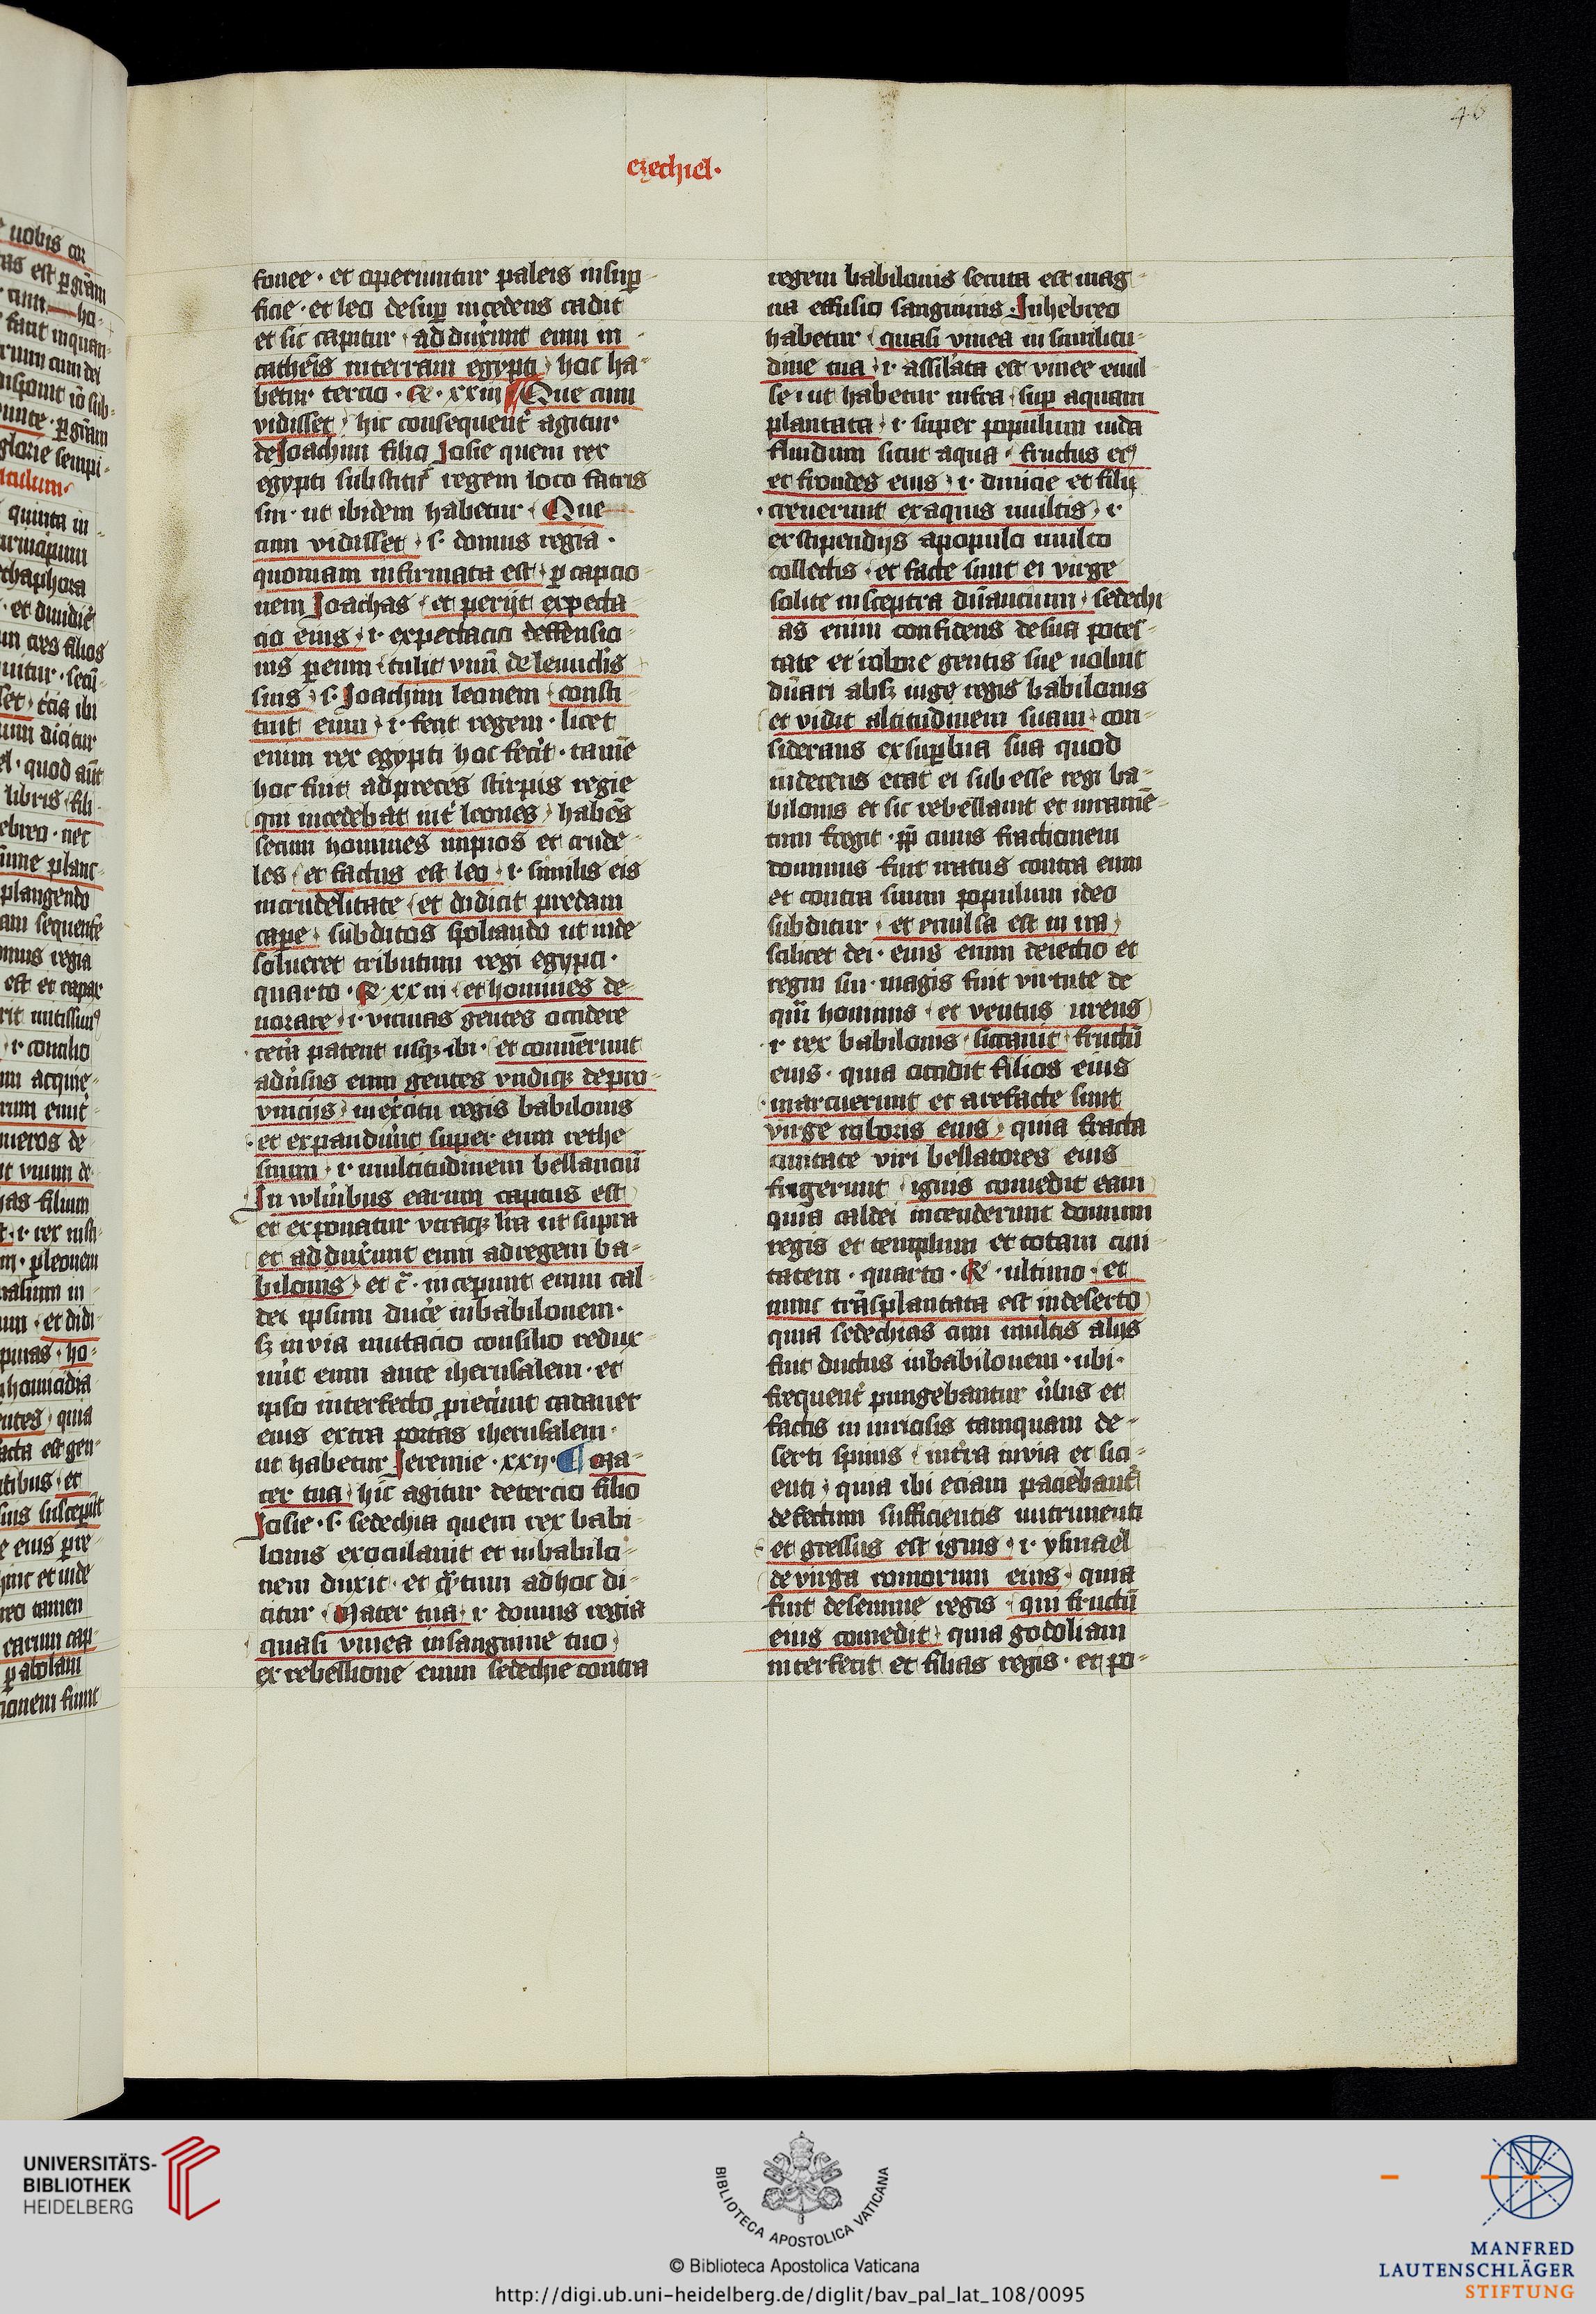 46
ezechiel.
fouee · et operiuntur paleis insup̲
ficie · et leo desup̲ incedens cadit
et sic capitur · adduxerunt eum in
cathe͂is interram egypti · hoc ha-
betur tercio · Re · xxiii Que cum
vidisset · hic consequent̓ agitur
deJoachim filio Josie quem rex
egypti substituit regem loco fratris
sui · ut ibidem habetur · Que
cum vidisset · s· domus regia ·
quoniam infirmata est · p̲ capcio-
nem Joachas · et perijt expecta-
cio eius · i· expectacio deffensio-
nis p̲ eum · tulit vnū de leunculis
suis · s· Joachim leonem · consti-
tuit eum · i· fecit regem · licet
enim rex egypti hoc fecit · tamē
hoc fuit adpreces stirpis regie
qui incedebat int̓ leones · habēs
secum homines impios et crude-
les · et factus est leo · i· similis eis
incrudelitate · et didicit predam
cape · subditos spoliando ut inde
solueret tributum regi egypti ·
quarto · Re xxiii · et homines de-
uorare · i· vicinas gentes occidere
cet̓a patent usq ibi · et conuēerunt
adūsus eum gentes vndiq depro-
vincijs · inex̓citu regis babilonis
et expandūnt super eum rethe
suum · i· multitudinem bellanciū
In wlnībus earum captus est
et exponatur vtraq lr̄a ut supra
et adduxe͂unt eum adregem ba-
bilonis · et c̄ · incepunt enim cal-
dei ipsum ducē inbabilonem ·
sz in via mutacio consilio redux-
nūt eum ante iherusalem · et
ipso interfecto p̓iecūnt cadauer
eius extra portas iherusalem ·
ut habetur Jeremie · xxij · ¶ Ma-
ter tua · hic agitur detercio filio
Josie · s· sedechia quem rex babi-
lonis exoculauit et inbabilo-
nem duxit · et q̄ntum adhoc di-
citur · Mater tua · i· domus regia
quasi vinea insanguine tuo ·
ex rebellione enim sedechie contra
regem babilonis secuta est mag-
na effusio sanguinis · Inhebreo
habetur · quasi vinea in similitu-
dine tua · i· assilata est vinee euul-
se · ut habetur infra · sup̲ aquam
plantata · i· super populum iuda
fluidum sicut aqua · fructus eꝰ
et frondes eius · i· diuicie et filij
creuerunt exaquis multis · i·
exstipendijs apopulo multo
collectis · et facte sunt ei virge
solite insceptra dn̄ancium · sedechi-
as enim confidens desua potes-
tate et robore gentis sue uoluit
dn̄ari absz iuge regis babilonis
et vidit altitudinem suam · con-
siderans exsup̲bia sua quod
indecens erat ei sub esse regi ba-
bilonis et sic rebellauit et iuramē-
tum fregit · pp̄ cuius fractionem
dominus fuit iratus contra eum
et contra suum populum ideo
subditur · et euulsa est in ira ·
scilicet dei · eius enim deiectio et
regni sui · magis fuit virtute de-
qūi hominis · et ventus urens
i· rex babilonis · siccauit fructū
eius · quia occidit filios eius
marcuerunt et arefacte sunt
virge roboris eius · quia fracta
ciuitate viri bellatores eius
fugerunt · ignis comedit eam
quia caldei incenderunt domum
regis et templum et totam ciui-
tatem · quarto · Re · ultimo · et
nunc trāsplantata est indeserto
quia sedechias cum multis alijs
fuit ductus inbabilonem · ubi ·
frequent̓ pungebantur ūbis et
factis in iuriosis tamquam de-
serti spinis · int̓ra invia et sici-
enti · quia ibi eciam paciebant̓
defectum sufficientis nutrimenti
et gressus est ignis · i· ysmael
devirga romorum eius · quia
fuit desemine regis · qui fructū
eius comedit · quia godoliam
interfecit et filias regis · et po-
UNIVERSITÄTS-
BIBLIOTHEK
HEIDELBERG
BIBLIOTECA APOSTOLICA VATICANA
© Biblioteca Apostolica Vaticana
http://digi.ub.uni-heidelberg.de/diglit/bav_pal_lat_108/0095
MANFRED
LAUTENSCHLÄGER
STIFTUNG